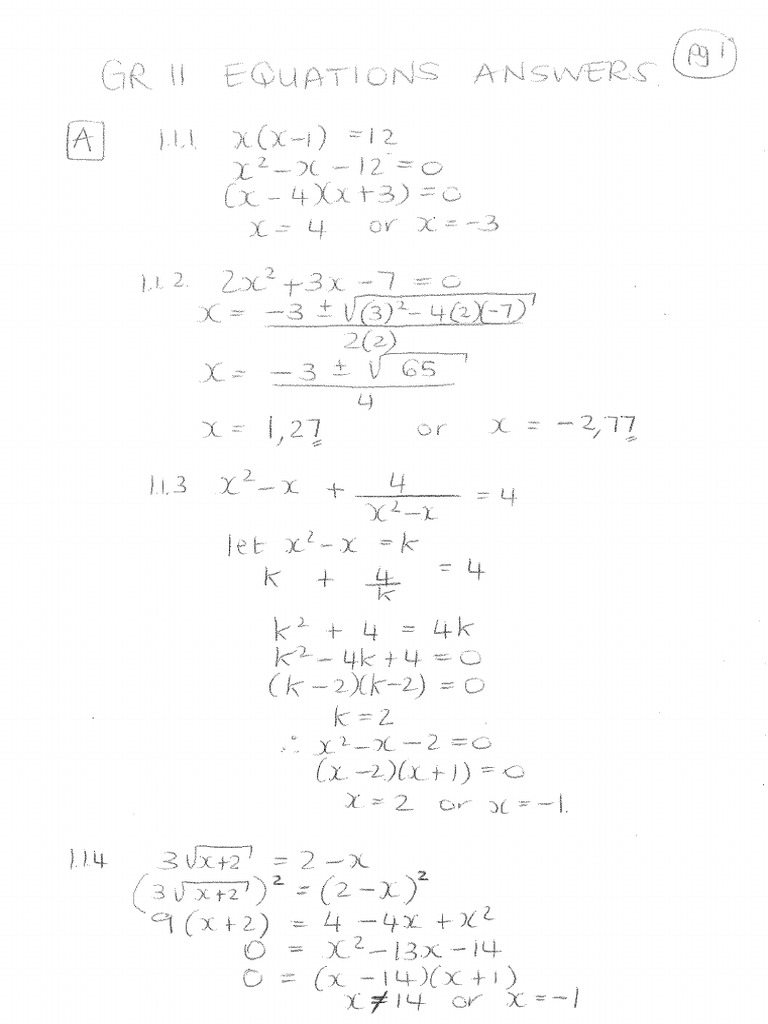 pg 1
GR 11 EQUATIONS ANSWERS.
A 1.1.1 x(x-1) = 12
x² - x - 12 = 0
(x - 4)(x + 3) = 0
x = 4 or x = -3
1.1.2. 2x² + 3x - 7 = 0
x = (-3 ± √((3)² - 4(2)(-7))) / 2(2)
x = (-3 ± √65) / 4
x = 1,27 or x = -2,77
1.1.3 x² - x + 4/(x² - x) = 4
let x² - x = k
k + 4/k = 4
k² + 4 = 4k
k² - 4k + 4 = 0
(k - 2)(k - 2) = 0
k = 2
∴ x² - x - 2 = 0
(x - 2)(x + 1) = 0
x = 2 or x = -1.
1.1.4 3√(x+2) = 2 - x
(3√(x+2))² = (2 - x)²
9(x + 2) = 4 - 4x + x²
0 = x² - 13x - 14
0 = (x - 14)(x + 1)
x ≠ 14 or x = -1